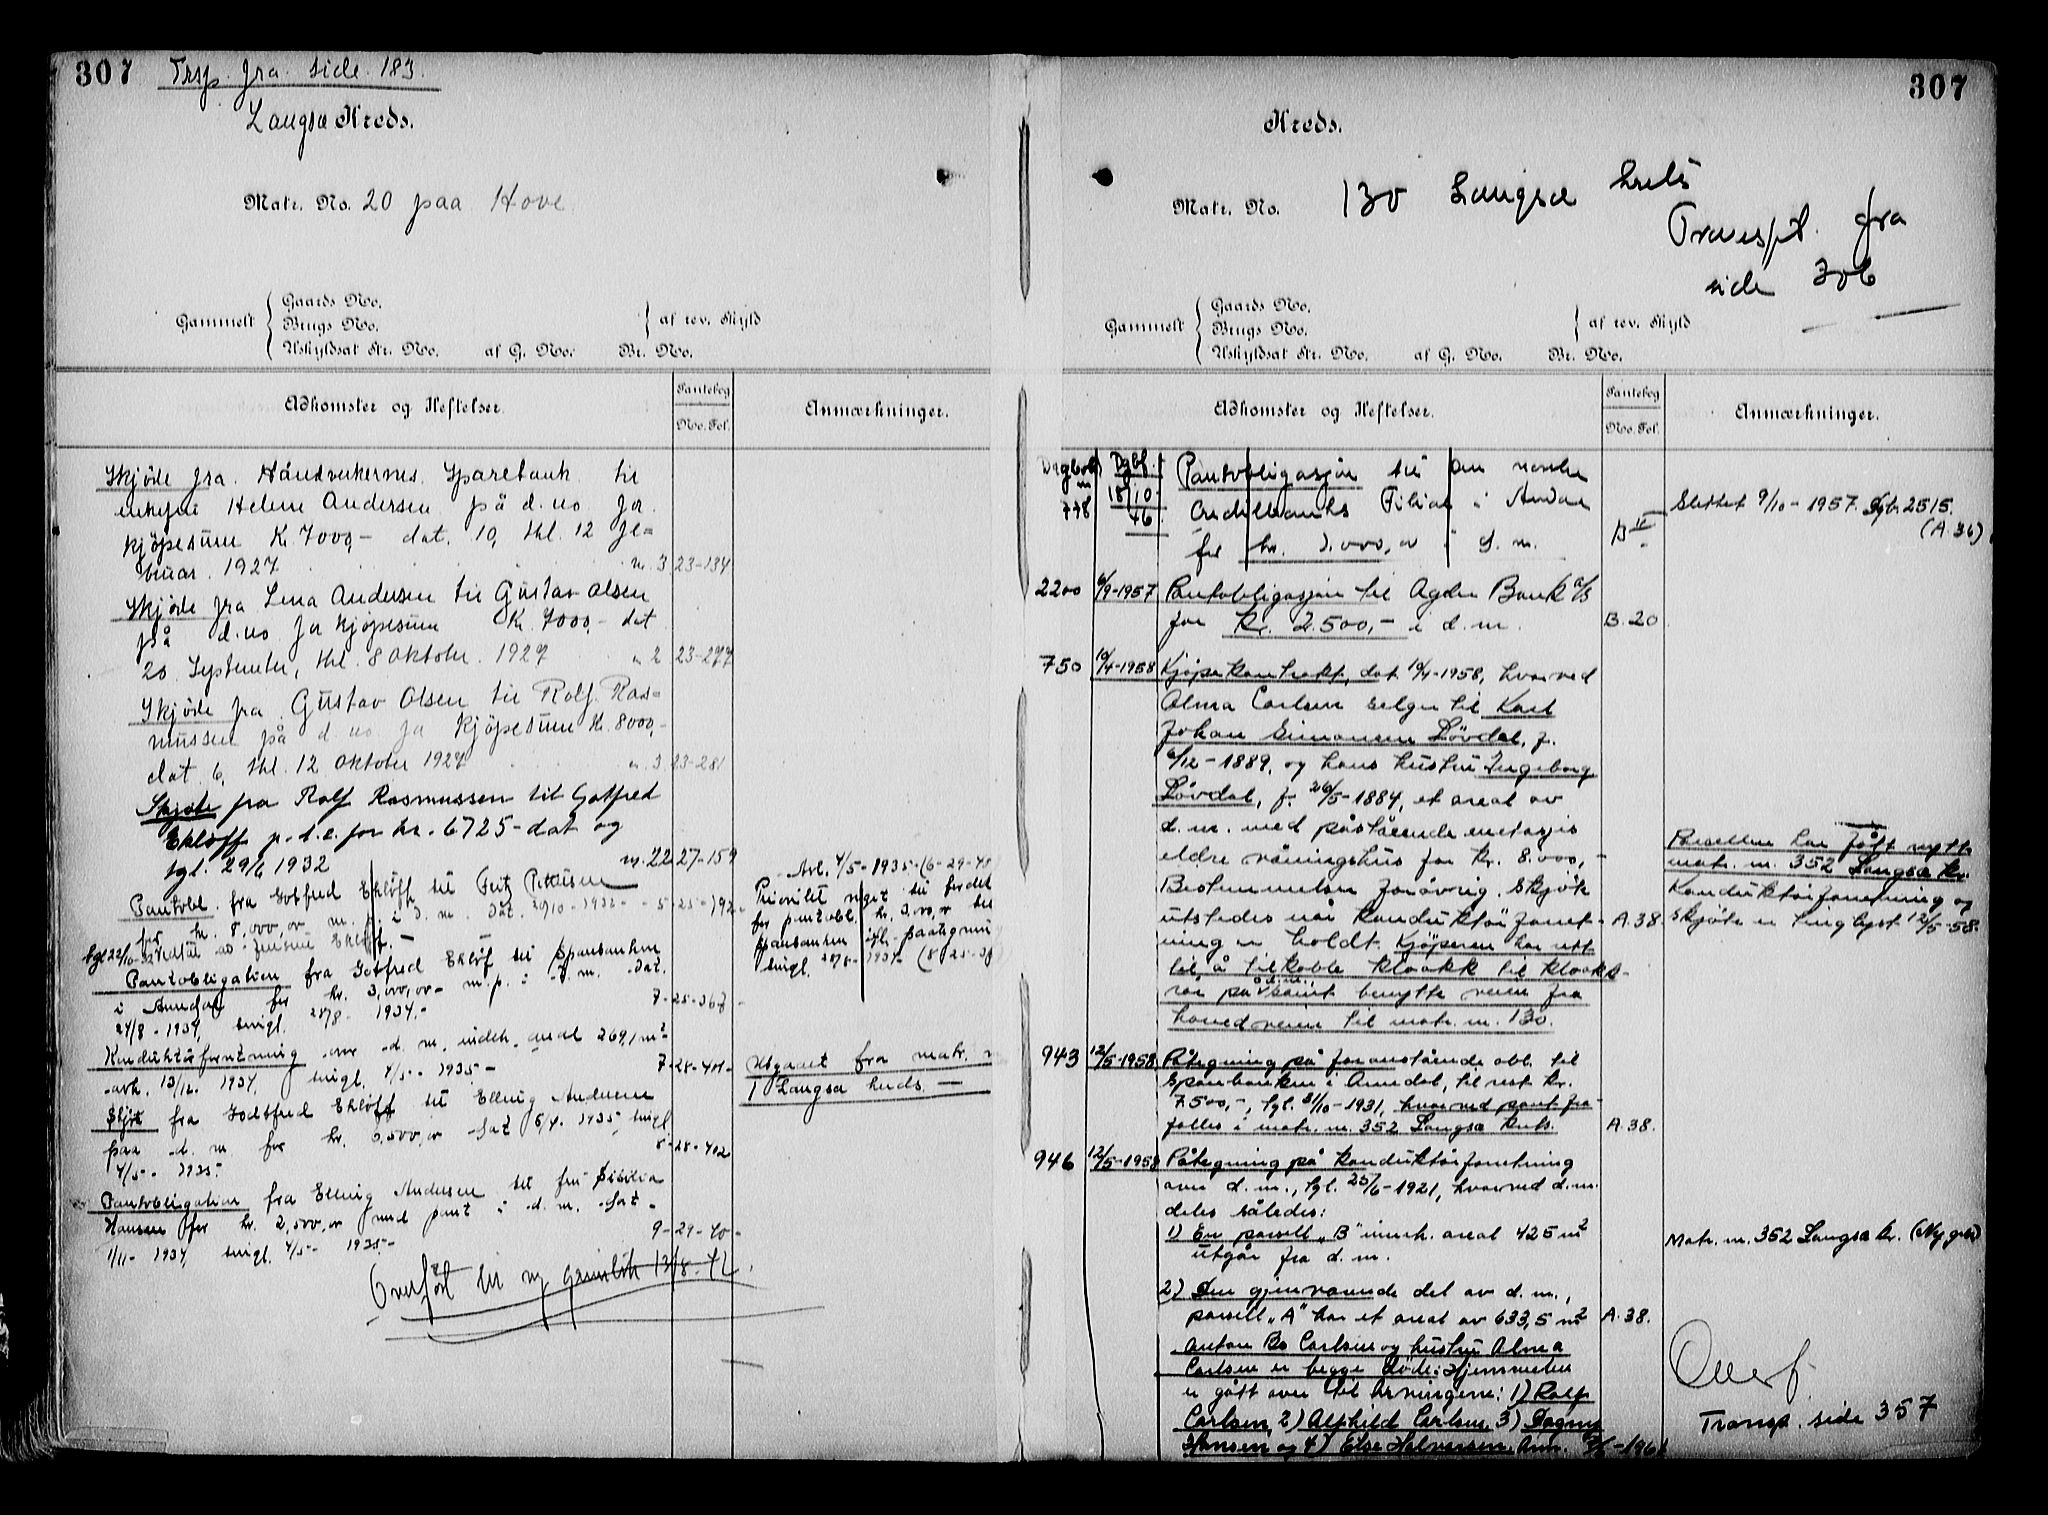 307 Trsp. fra side 183.
Langsæ Kreds.
Matr. No. 20 paa Hove
Gammelt
Gaards No.
Brugs No.
Uskyldsat Str. No. af G. No. Br. No.
af rev. Skyld
Adkomster og Heftelser.
Pantebog
No. Fol.
Anmærkninger.
Skjøde fra Håndverkernes Sparebank til
enkefru Helene Andersen på d. no for
kjøpesum Kr. 7000,- dat. 10, thl. 12 fe-
bruar. 1927 n. 3 23-134
Skjøde fra Lina Andersen til Gustav Olsen
på d. no for kjøpesum Kr. 7000,- dat
20 September, thl. 8 Oktober. 1927 " 2 23-277
Skjøde fra Gustav Olsen til Rolf Ras-
mussen på d. no for kjøpesum kr. 8000,-
dat. 6, thl. 12 Oktober 1927 " 3 23-281
Skjøte fra Rolf Rasmussen til Gotfred
Ekløff p. d. e. for kr. 6725- dat og
tgl. 29/6 1932 n. 22 27-159
Pantobl. fra Gotfred Ekløff til Fritz Pettersen
for kr. 8,000,00 m. p. i d. m. dat. 20/10-1932- 5-25-192-
tgl 22/10-32
Avl. 4/5-1935-(6-29-48)
Prioritet veget til fordel
for pantobl. kr. 3,000,00 til
Sparebanken ifl. paategning
tingl. 28/8-1934- (8-25-38)
Pantobligation fra Gotfred Ekløf til Sparebanken
i Arendal for kr. 3,000,00- m. p. i d. m. dat.
24/8-1934, tingl. 28/8- 1934.- 7-25-367-
Konduktørforretning over d. m. indeh. areal 269,1 m²
avh. 13/12. 1934. tingl. 4/5- 1935- 7-28-401-
Utgaaet fra matr. n
1 Langsæ kreds. —
Skjøte fra Godtfred Ekløff til Elling Andersen
paa d. m for kr. 6,500,00 dat 5/4. 1935, tingl
4/5- 1935- 8-28-402
Pantobligation fra Elling Andersen til fru Sisilia
Hansen for kr. 2,500,00 med pant i d. m. dat-
1/11- 1934, tingl. 4/5- 1935- 9-29-40-
Overført til ny grunnbok 13/8-42.
307
Kreds.
Matr. No. 130 Langsæ krets
Transpt. fra
side 306
Gammelt
Gaards No.
Brugs No.
Uskyldsat Str. No. af G. No. Br. No.
af rev. Skyld
Adkomster og Heftelser.
Pantebog
No. Fol.
Anmærkninger.
Dagbok Dgbf.
nr 778 18/10 46. Pantobligasjon til Den norske
Creditbanks Filial i Arendal
for kr. 3.000,00 i d. m. B II
Slettet 9/10-1957. Dgb. 2515.
(A. 36)
2200 6/9-1957 Pantobligasjon til Agder Bank A/S
for kr. 2.500,- i d. m. B. 20
750 10/4-1958 Kjøpekontrakt, dat 10/4-1958, hvorved
Alma Carlsen selger til Karl
Johan Simonsen Løvdal, f.
6/12-1889, og hans hustru Ingeborg
Løvdal, f. 26/5-1884, et areal av
d. m. med påstående enetasjes
eldre våningshus for kr. 8.000,-
Bestemmelser forøvrig. Skjøte
utstedes når konduktørforret-
ning er holdt. Kjøperen har rett
til å tilkoble kloakk til kloakk-
rør på d. m. samt benytte veien fra
hovedveien til matr. nr. 130. A. 38.
Parsellen har fått nytt
matr. nr. 352 Langsæ kr.
Konduktørforretning og
skjøte er tinglyst 12/5-58.
943 12/5-1958 Påtegning på foranstående obl. til
Sparebanken i Arendal, til rest kr.
7.500,-, tgl. 31/10-1931, hvorved pant fra-
falles i matr. nr. 352 Langsæ krets. A. 38.
946 12/5-1958 Påtegning på konduktørforretning
over d. m., tgl. 25/6-1921, hvorved d. m.
deles således:
1) En parsell "B" inneh. areal 425 m²
utgår fra d. m.
Matr. nr. 352 Langsæ kr. (Ny grb)
2) Den gjenværende del av d. m.,
parsell "A" har et areal av 633,5 m² A. 38.
Anton Bs Carlsen og hustru Alma
Carlsen er begge døde: Hjemmelen
er gått over til arvingene: 1) Rolf
Carlsen, 2) Alfhild Carlsen, 3) Dagny
Hansen, og 4) Else Halvorsen. Anm.
Overf.
Transp. side 357